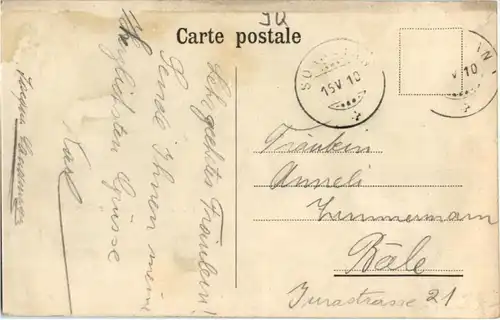 JU
Carte postale
15 V 10
V 10
Sehr geehrtes Fräulein!
Sende Ihnen meine
Herzlichsten Grüsse
Karl
Fräulein
Anneli
Zimmermann
Bâle
Jurastrasse 21